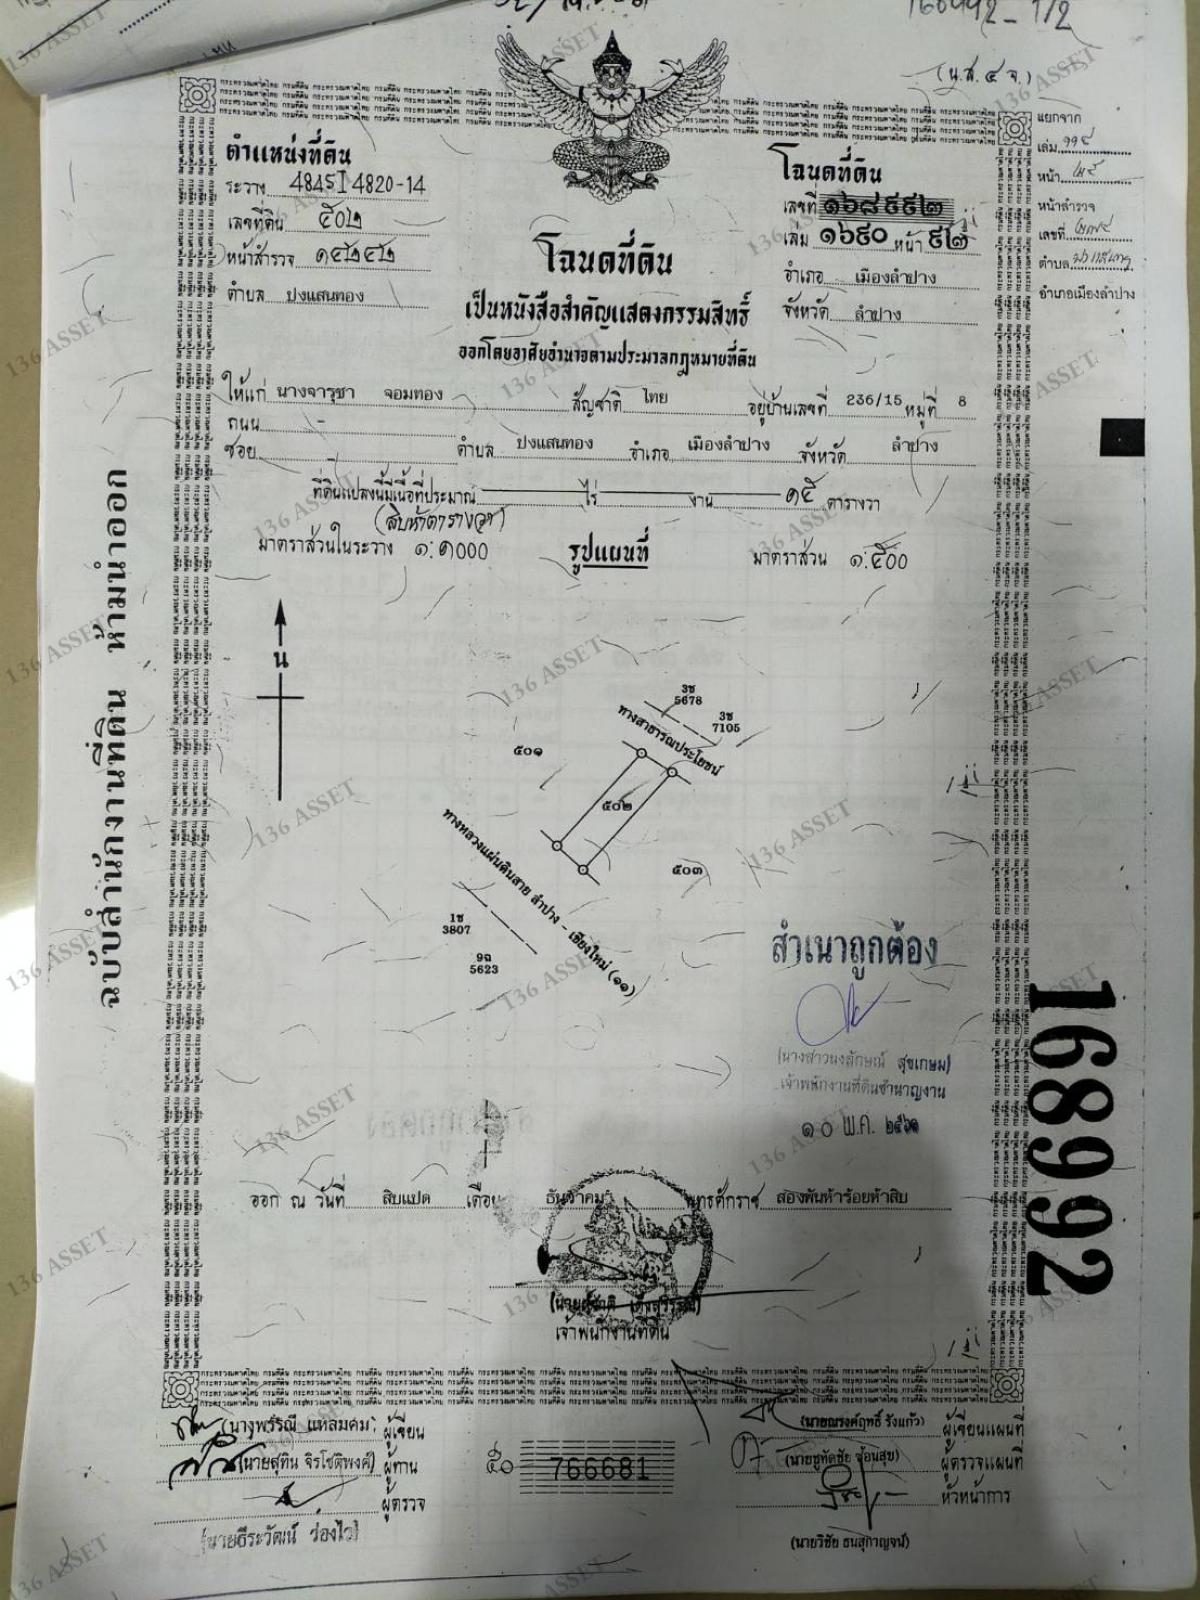 168992 - 1/2
(น.ส. ๔ จ.)
ตำแหน่งที่ดิน
ระวาง 4845 I 4820-14
เลขที่ดิน ๕๐๒
หน้าสำรวจ ๑๕๒๕๒
ตำบล ปงแสนทอง
โฉนดที่ดิน
เลขที่ ๑๖๘๙๙๒
เล่ม ๑๖๙๐ หน้า ๙๒
อำเภอ เมืองลำปาง
จังหวัด ลำปาง
แยกจาก
เล่ม
หน้า
หน้าสำรวจ
เลขที่
ตำบล ปงแสนทอง
อำเภอเมืองลำปาง
โฉนดที่ดิน
เป็นหนังสือสำคัญแสดงกรรมสิทธิ์
ออกโดยอาศัยอำนาจตามประมวลกฎหมายที่ดิน
ให้แก่ นางจารุชา จอมทอง สัญชาติ ไทย อยู่บ้านเลขที่ 236/15 หมู่ที่ 8
ถนน -
ซอย - ตำบล ปงแสนทอง อำเภอ เมืองลำปาง จังหวัด ลำปาง
ที่ดินแปลงนี้มีเนื้อที่ประมาณ ไร่ งาน ๑๕ ตารางวา
(สิบห้าตารางวา)
มาตราส่วนในระวาง ๑:๑๐๐๐ รูปแผนที่ มาตราส่วน ๑:๕๐๐
น
3ช
5678
3ช
7105
ทางสาธารณประโยชน์
๕๐๑
๕๐๒
๕๐๓
ทางหลวงแผ่นดินสาย ลำปาง - เชียงใหม่ (๑๑)
1ช
3807
9ฉ
5623
ฉบับสำนักงานที่ดิน ห้ามนำออก
สำเนาถูกต้อง
(นางสาวนงลักษณ์ สุขเกษม)
เจ้าพนักงานที่ดินชำนาญงาน
๑๐ พ.ค. ๒๕๖๑
168992
ออก ณ วันที่ สิบแปด เดือน ธันวาคม พุทธศักราช สองพันห้าร้อยห้าสิบ
เจ้าพนักงานที่ดิน
(นางพรรณี แหลมคม) ผู้เขียน
(นายสุทิน จิรโชติพงศ์) ผู้ทาน
ผู้ตรวจ
(นายธีระวัฒน์ ว่องไว)
๕๐ 766681
(นายณรงค์ฤทธิ์ รังแก้ว) ผู้เขียนแผนที่
(นายชูทัดชัย ซ้อนสุข) ผู้ตรวจแผนที่
หัวหน้าการ
(นายวิชัย ธนสุกาญจน์)
136 ASSET